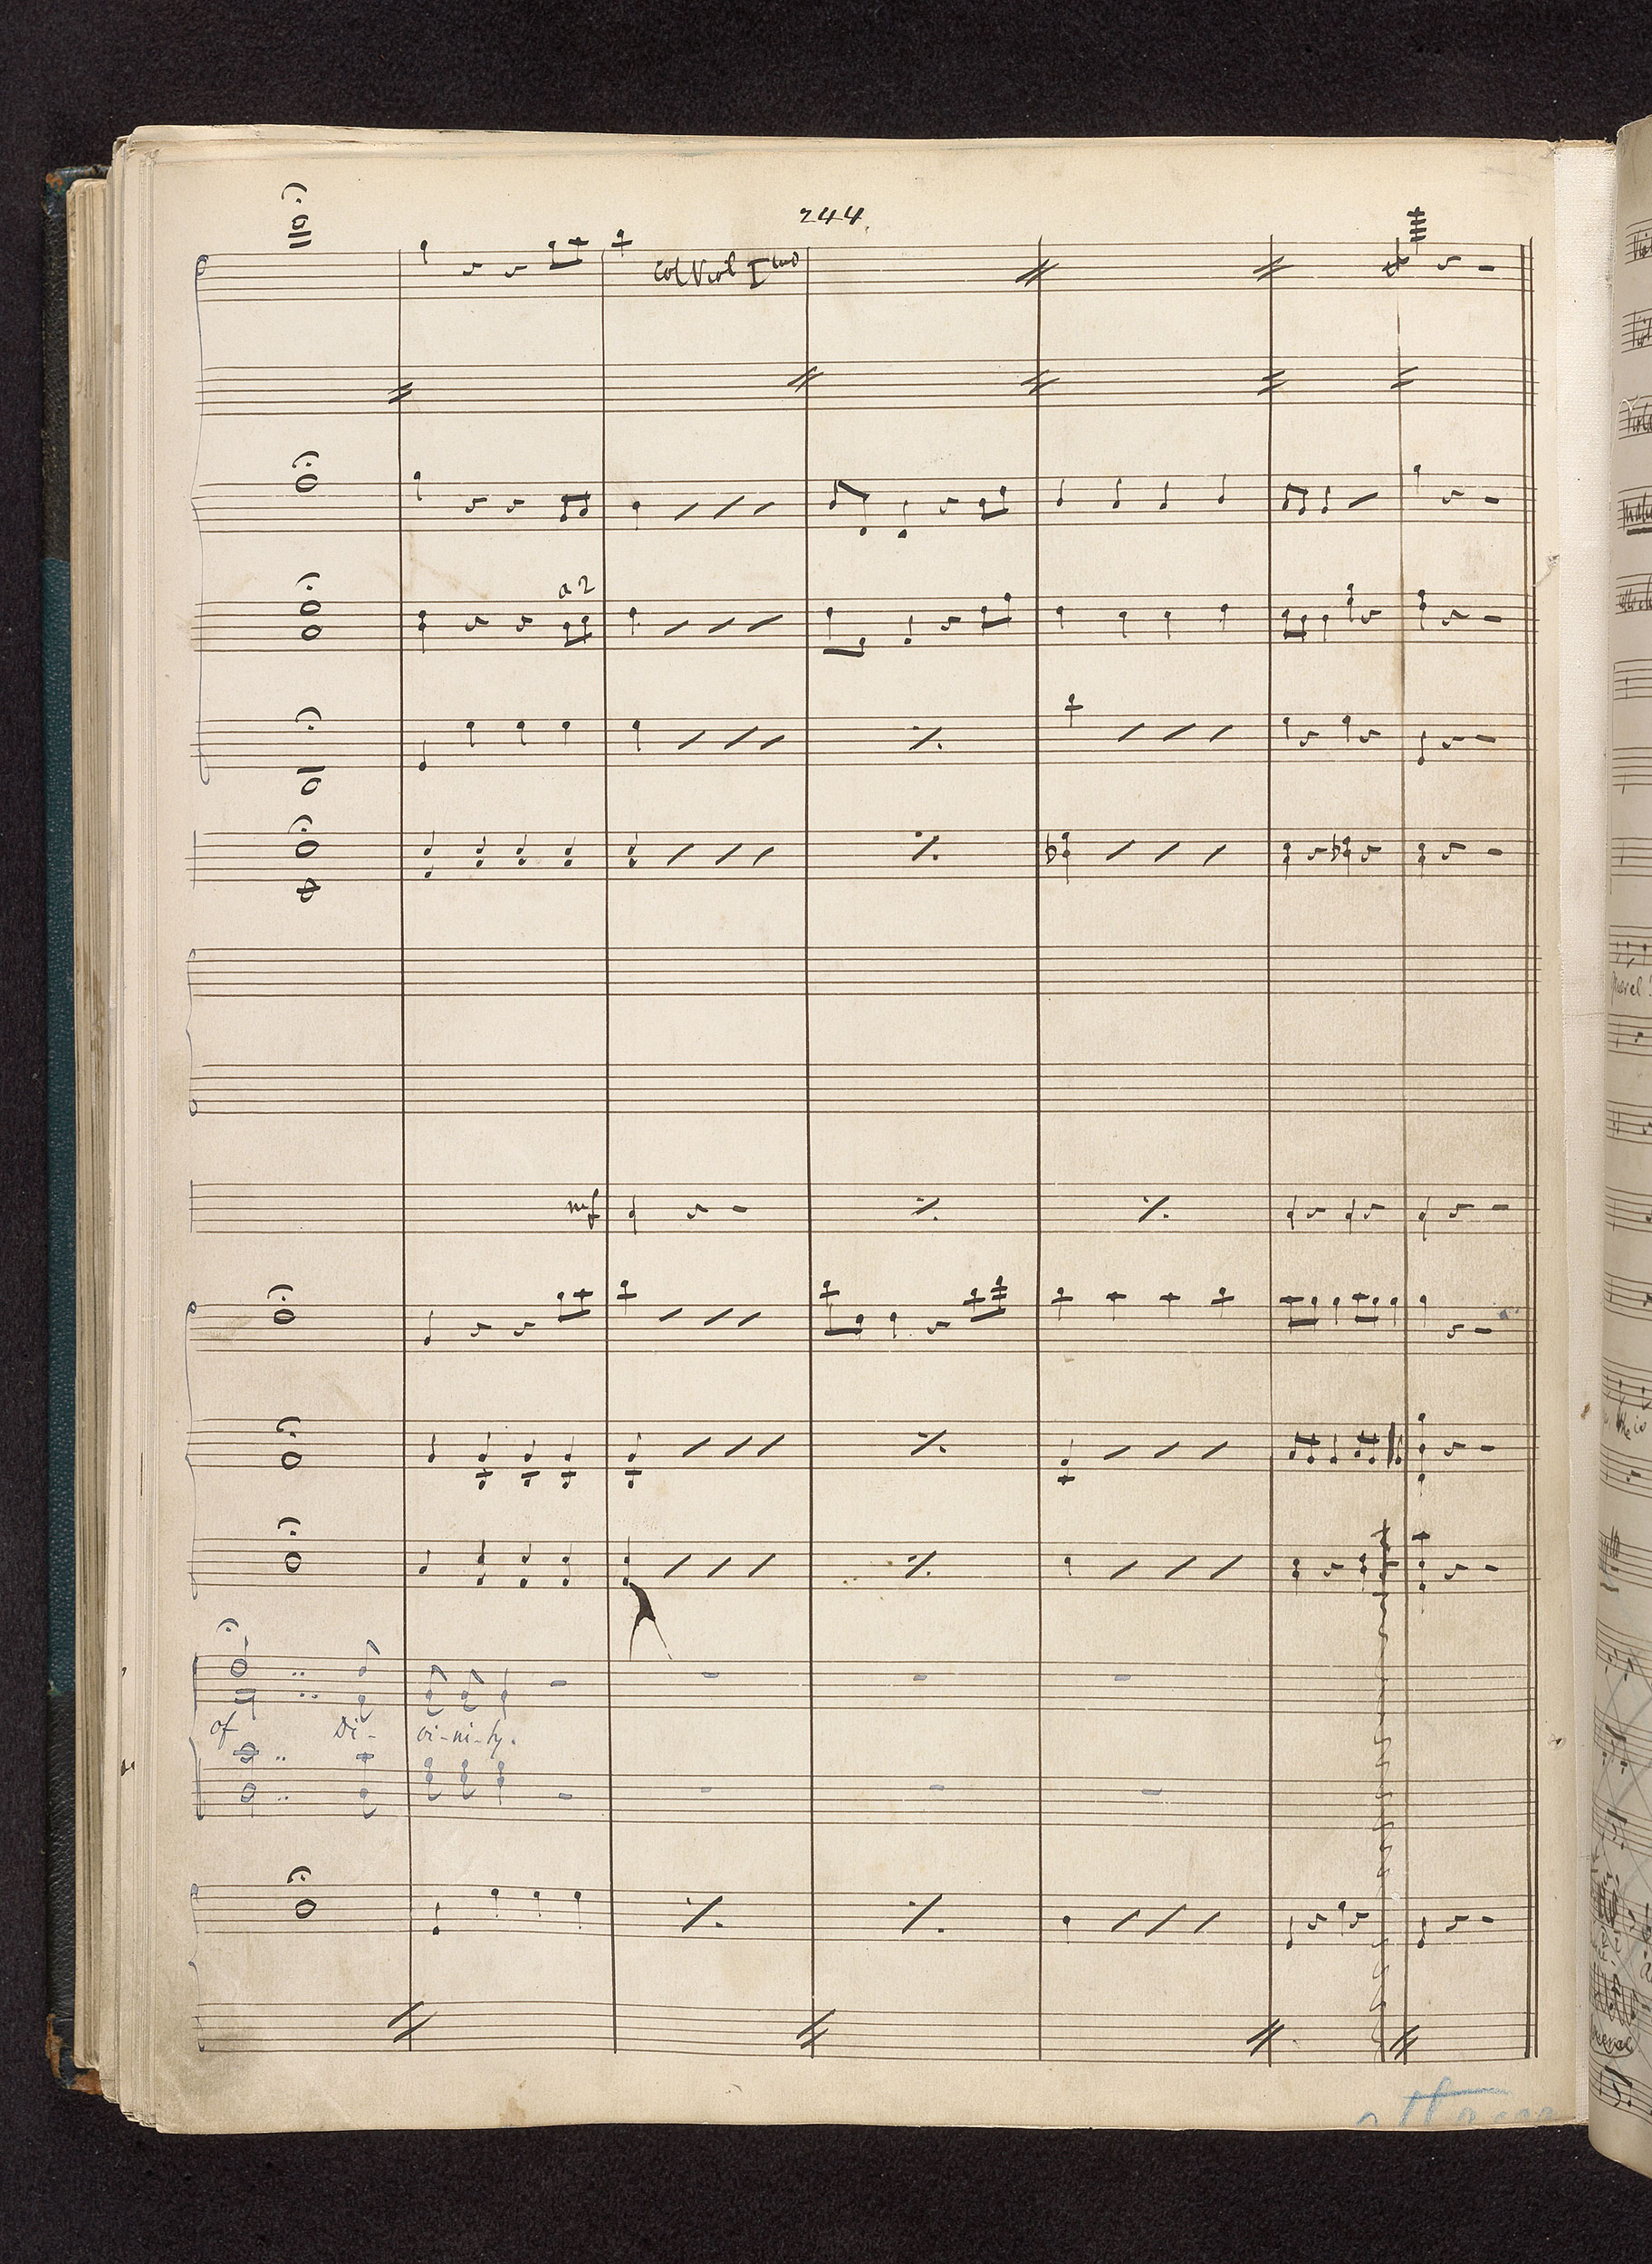 244
Col Viol Imo
a 2
mf
of Di- vi-ni-ty.
attacca